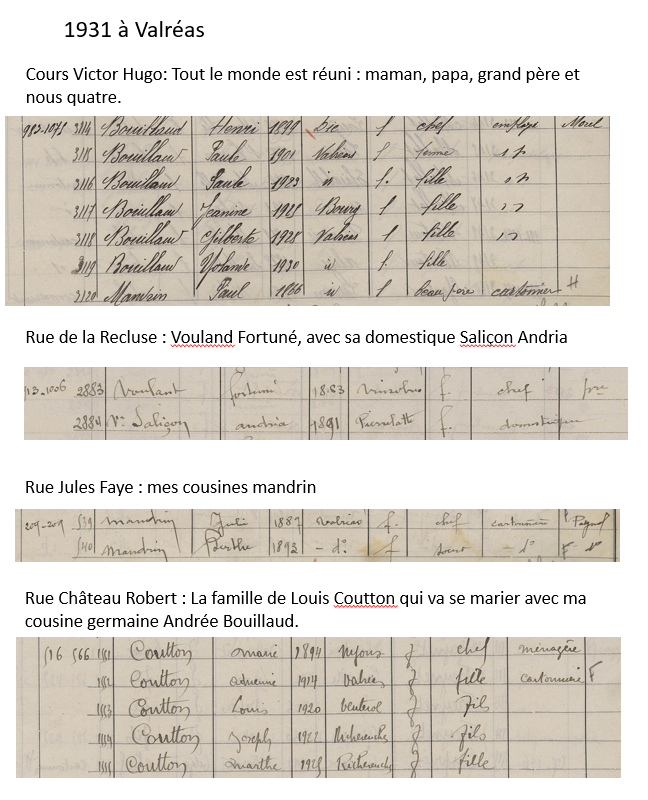 1931 à Valréas
Cours Victor Hugo: Tout le monde est réuni : maman, papa, grand père et
nous quatre.
983-1075 3114 Bouillaud Henri 1899 Die f chef employé Morel
3115 Bouillaud Paule 1901 Valréas f femme
3116 Bouillaud Paule 1923 id f. fille
3117 Bouillaud Jeanine 1925 Bourg f fille
3118 Bouillaud Gilberte 1928 Valréas f fille
3119 Bouillaud Yolande 1930 id f. fille
3120 Mandrin Paul 1866 id f beau père cartonnier H
Rue de la Recluse : Vouland Fortuné, avec sa domestique Saliçon Andria
2883 Voulant fortuné 1863 Vinsobres f. chef
2884 Ve Saliçon andria 1891 Pierrelatte f. domestique
Rue Jules Faye : mes cousines mandrin
209-209 539 Mandrin Julie 1887 Valréas f. chef cartonnière Pagnol
540 Mandrin Berthe 1893 - d° f soeur - d° F d°
Rue Château Robert : La famille de Louis Coutton qui va se marier avec ma
cousine germaine Andrée Bouillaud.
516 566 1551 Coutton Marie 1894 Nyons f chef ménagère
1552 Coutton Adrienne 1914 Valréas f fille cartonnière F
1553 Coutton Louis 1920 Venterol f fils
1554 Coutton Joseph 1922 Richerenches f fils
1555 Coutton Marthe 1925 Richerenches f fille